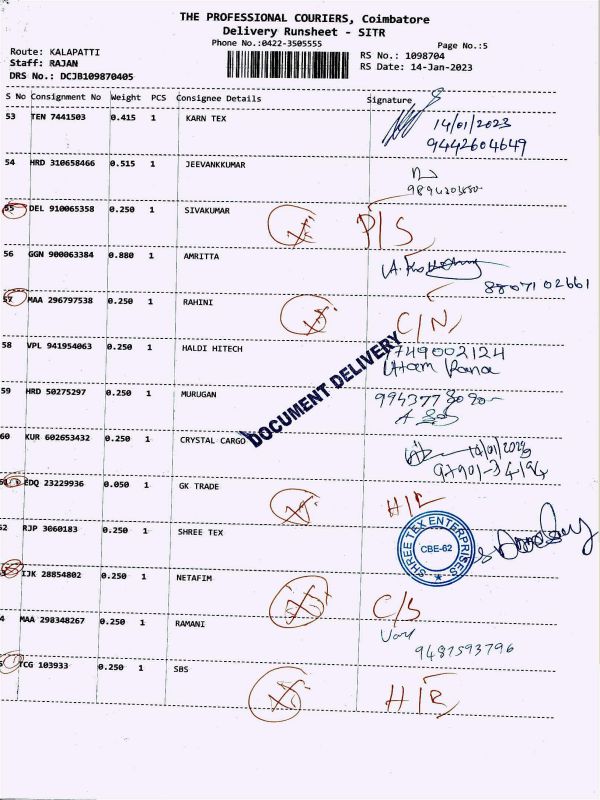 THE PROFESSIONAL COURIERS, Coimbatore
Delivery Runsheet - SITR
Phone No.:0422-3505555
Page No.:5
Route: KALAPATTI
Staff: RAJAN
DRS No.: DCJB109870405
RS No.: 1098704
RS Date: 14-Jan-2023
S No Consignment No Weight PCS Consignee Details Signature
53 TEN 7441503 0.415 1 KARN TEX
14/01/2023
9442604649
54 HRD 310658466 0.515 1 JEEVANKKUMAR
55 DEL 910065358 0.250 1 SIVAKUMAR P/S
56 GGN 900063384 0.880 1 AMRITTA
8807102661
57 MAA 296797538 0.250 1 RAHINI C/N
58 VPL 941954063 0.250 1 HALDI HITECH
9749002124
Uttam Rana
DOCUMENT DELIVERY
59 HRD 50275297 0.250 1 MURUGAN
60 KUR 602653432 0.250 1 CRYSTAL CARGO
14/01/2023
EDQ 23229936 0.050 1 GK TRADE
62 RJP 3060183 0.250 1 SHREE TEX
SHREE TEX ENTERPRISES
CBE-62
IJK 28854802 0.250 1 NETAFIM C/S
4 MAA 298348267 0.250 1 RAMANI
9487593796
TCG 103933 0.250 1 SBS H/R